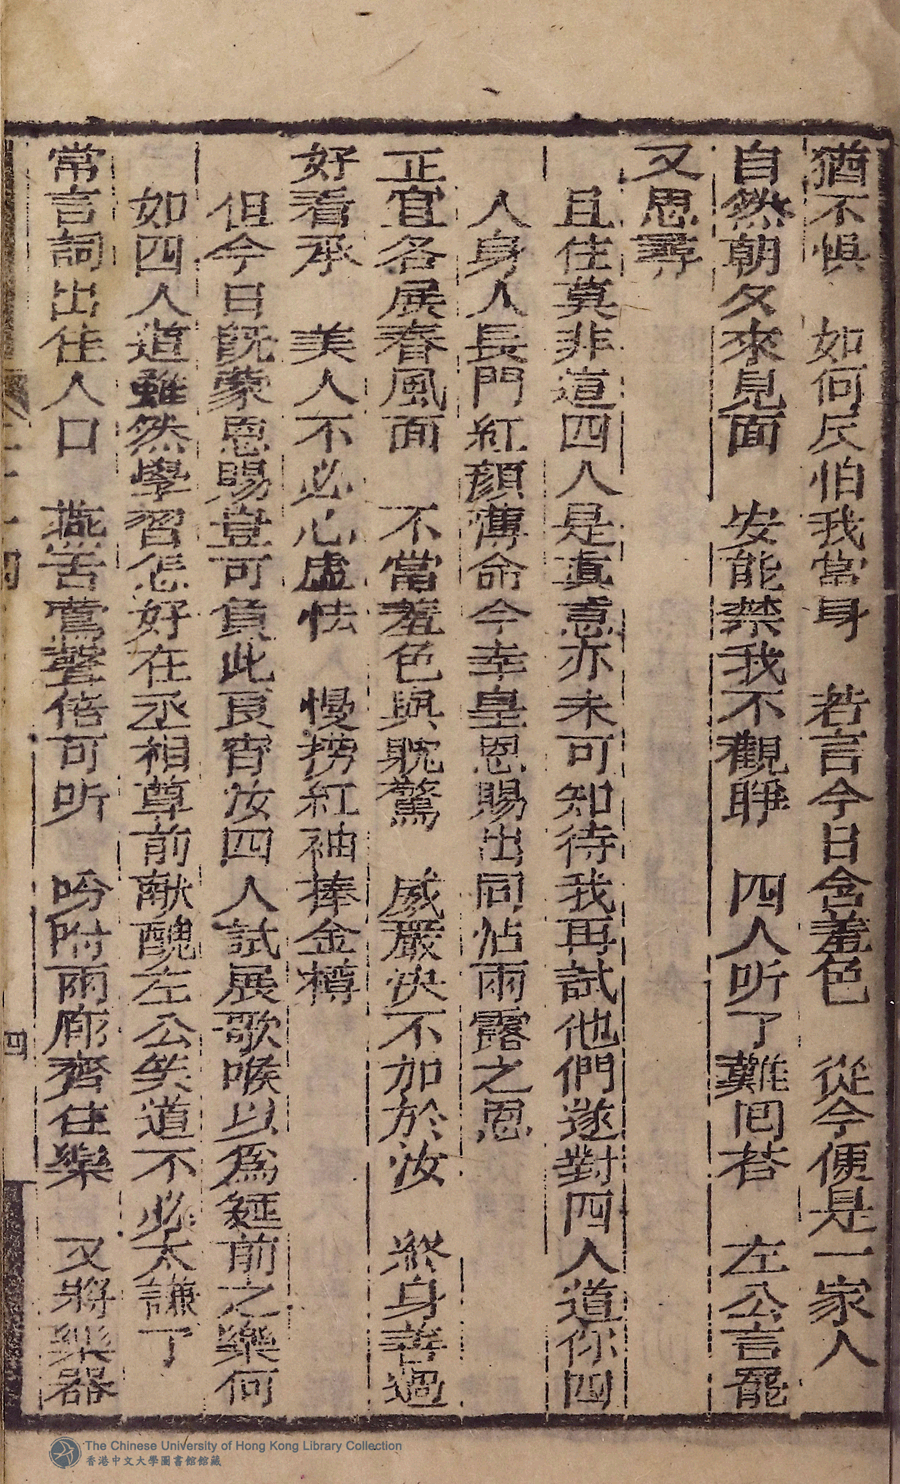 猶不惧　如何反怕我當身　若言今日含羞色　從今便是一家人
自然朝夕來見面　安能禁我不觀睜　四人听了難囘荅　左公言罷
又思尋
且住莫非道四人是真意亦未可知待我再試他們遂對四人道你四
人身人長門紅顔薄命今幸皇恩賜出同怗雨露之恩
正宜各展春風面　不當羞色與眈驚　威嚴决不加於汝　終身善過
好看承　美人不必心虚怯　慢撈紅袖捧金樽
但今日既蒙恩賜豈可負此良宵汝四人試展歌喉以爲筵前之樂何
如四人道雖然學習怎好在丞相尊前献醜左公笑道不必太謙了
常言詞出佳人口　燕舌鶯聲倍可听　吩咐兩廊齊住樂　又將樂器
四
The Chinese University of Hong Kong Library Collection
香港中文大學圖書館館藏